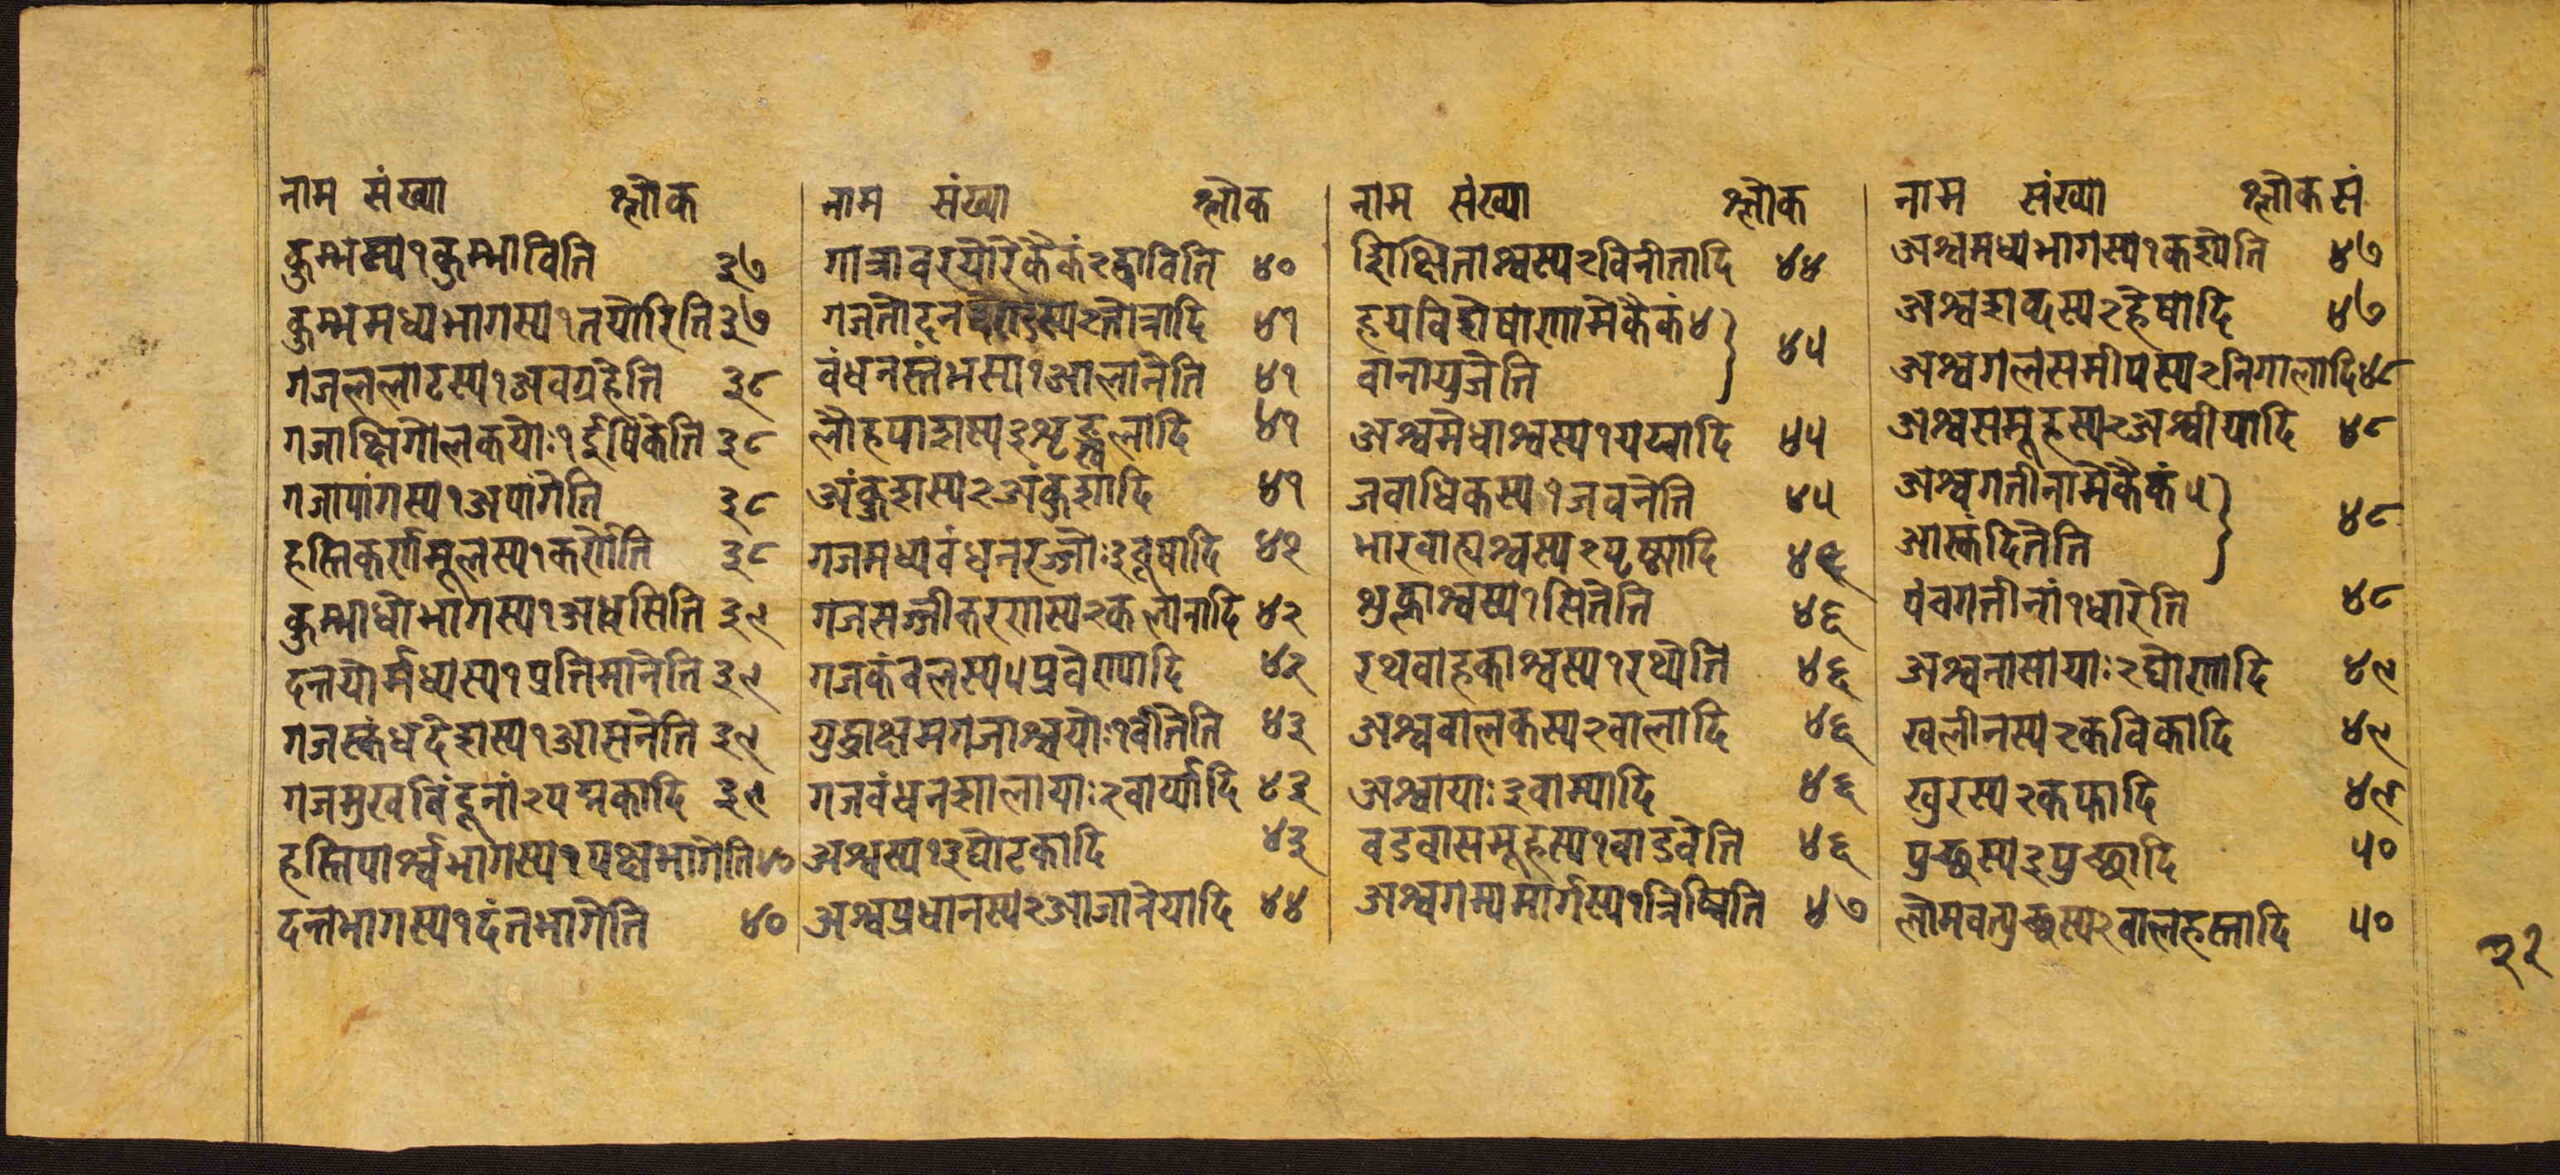 नाम संख्या श्लोक
कुम्भस्य१कुम्भाविति ३७
कुम्भमध्यभागस्य१तयोरिति ३७
गजललाटस्य१अवग्रहेति ३८
गजाक्षिगोलकयोः१ईषिकेति ३८
गजापांगस्य१अपांगेति ३८
हस्तिकर्णमूलस्य१कर्णेति ३८
कुम्भाधोभागस्य१अधसिति ३९
दन्तयोर्मध्यस्य१प्रतिमानेति ३९
गजस्कंधदेशस्य१आसनेति ३९
गजमुखविंदूनां२पद्मकादि ३९
हस्तिपार्श्वभागस्य१पक्षभागेति ४०
दन्तभागस्य१दंतभागेति ४०
नाम संख्या श्लोक
गात्रावरयोरेकैकं२द्वाविति ४०
गजतोदनदण्डस्य२तोत्रादि ४१
वंधनस्तंभस्य१आलानेति ४१
लौहपाशस्य३शृङ्खलादि ४१
अंकुशस्य२अंकुशादि ४१
गजमध्यवंधनरज्जोः३दूषादि ४२
गजसज्जीकरणस्य२कल्पनादि ४२
गजकंवलस्य५प्रवेण्यादि ४२
युद्धाक्षमगजाश्वयोः१वीतेति ४३
गजवंधनशालायाः२वार्य्यादि ४३
अश्वस्य१३घोटकादि ४३
अश्वप्रधानस्य२आजानेयादि ४४
नाम संख्या श्लोक
शिक्षिताश्वस्य२विनीतादि ४४
हयविशेषाणामेकैकं४
वानायुजेति ४५
अश्वमेधाश्वस्य१यय्वादि ४५
जवाधिकस्य१जवनेति ४५
भारवाह्यश्वस्य२पृष्ठ्यादि ४६
शुक्लाश्वस्य१सितेति ४६
रथवाहकाश्वस्य१रथ्येति ४६
अश्ववालकस्य२वालादि ४६
अश्वायाः३वाम्यादि ४६
वडवासमूहस्य१वाडवेति ४६
अश्वगम्यमार्गस्य१त्रिष्विति ४७
नाम संख्या श्लोकसं
अश्वमध्यभागस्य१कश्येति ४७
अश्वशव्दस्य२हेषादि ४७
अश्वगलसमीपस्य२निगालादि ४८
अश्वसमूहस्य२अश्वीयादि ४८
अश्वगतीनामेकैकं५
आस्कंदितेति ४८
पंचगतीनां१धारेति ४८
अश्वनासायाः२घोणादि ४९
खलीनस्य२कविकादि ४९
खुरस्य२कफादि ४९
पुच्छस्य३पुच्छादि ५०
लोमवत्पुच्छस्य२वालहस्तादि ५०
२२